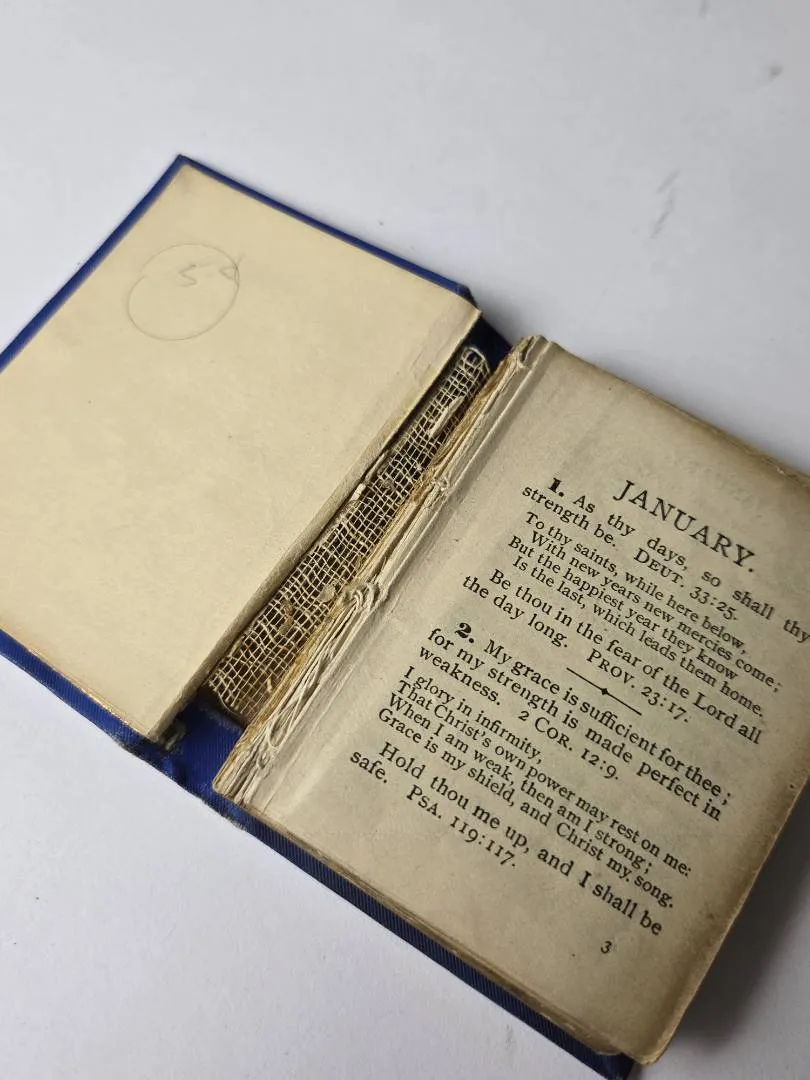 JANUARY.
1. As thy days, so shall thy
strength be. DEUT. 33:25.
To thy saints, while here below,
With new years new mercies come;
But the happiest year they know
Is the last, which leads them home.
Be thou in the fear of the Lord all
the day long. PROV. 23:17.
2. My grace is sufficient for thee;
for my strength is made perfect in
weakness. 2 COR. 12:9.
I glory in infirmity,
That Christ's own power may rest on me:
When I am weak, then am I strong;
Grace is my shield, and Christ my song.
Hold thou me up, and I shall be
safe. PSA. 119:117.
3